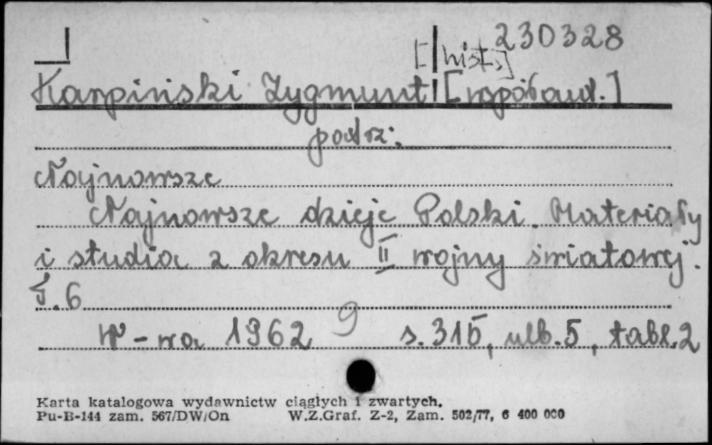 230328
[hist.]
Karpiński Zygmunt [współaut.]
podsz:
Najnowsze
Najnowsze dzieje Polski. Materiały
i studia z okresu II wojny światowej.
T.6
W-wa 1962 9 s.315, ulb.5, tabl.2
Karta katalogowa wydawnictw ciągłych i zwartych.
Pu-B-144 zam. 567/DW/On W.Z.Graf. Z-2, Zam. 502/77, 6 400 000